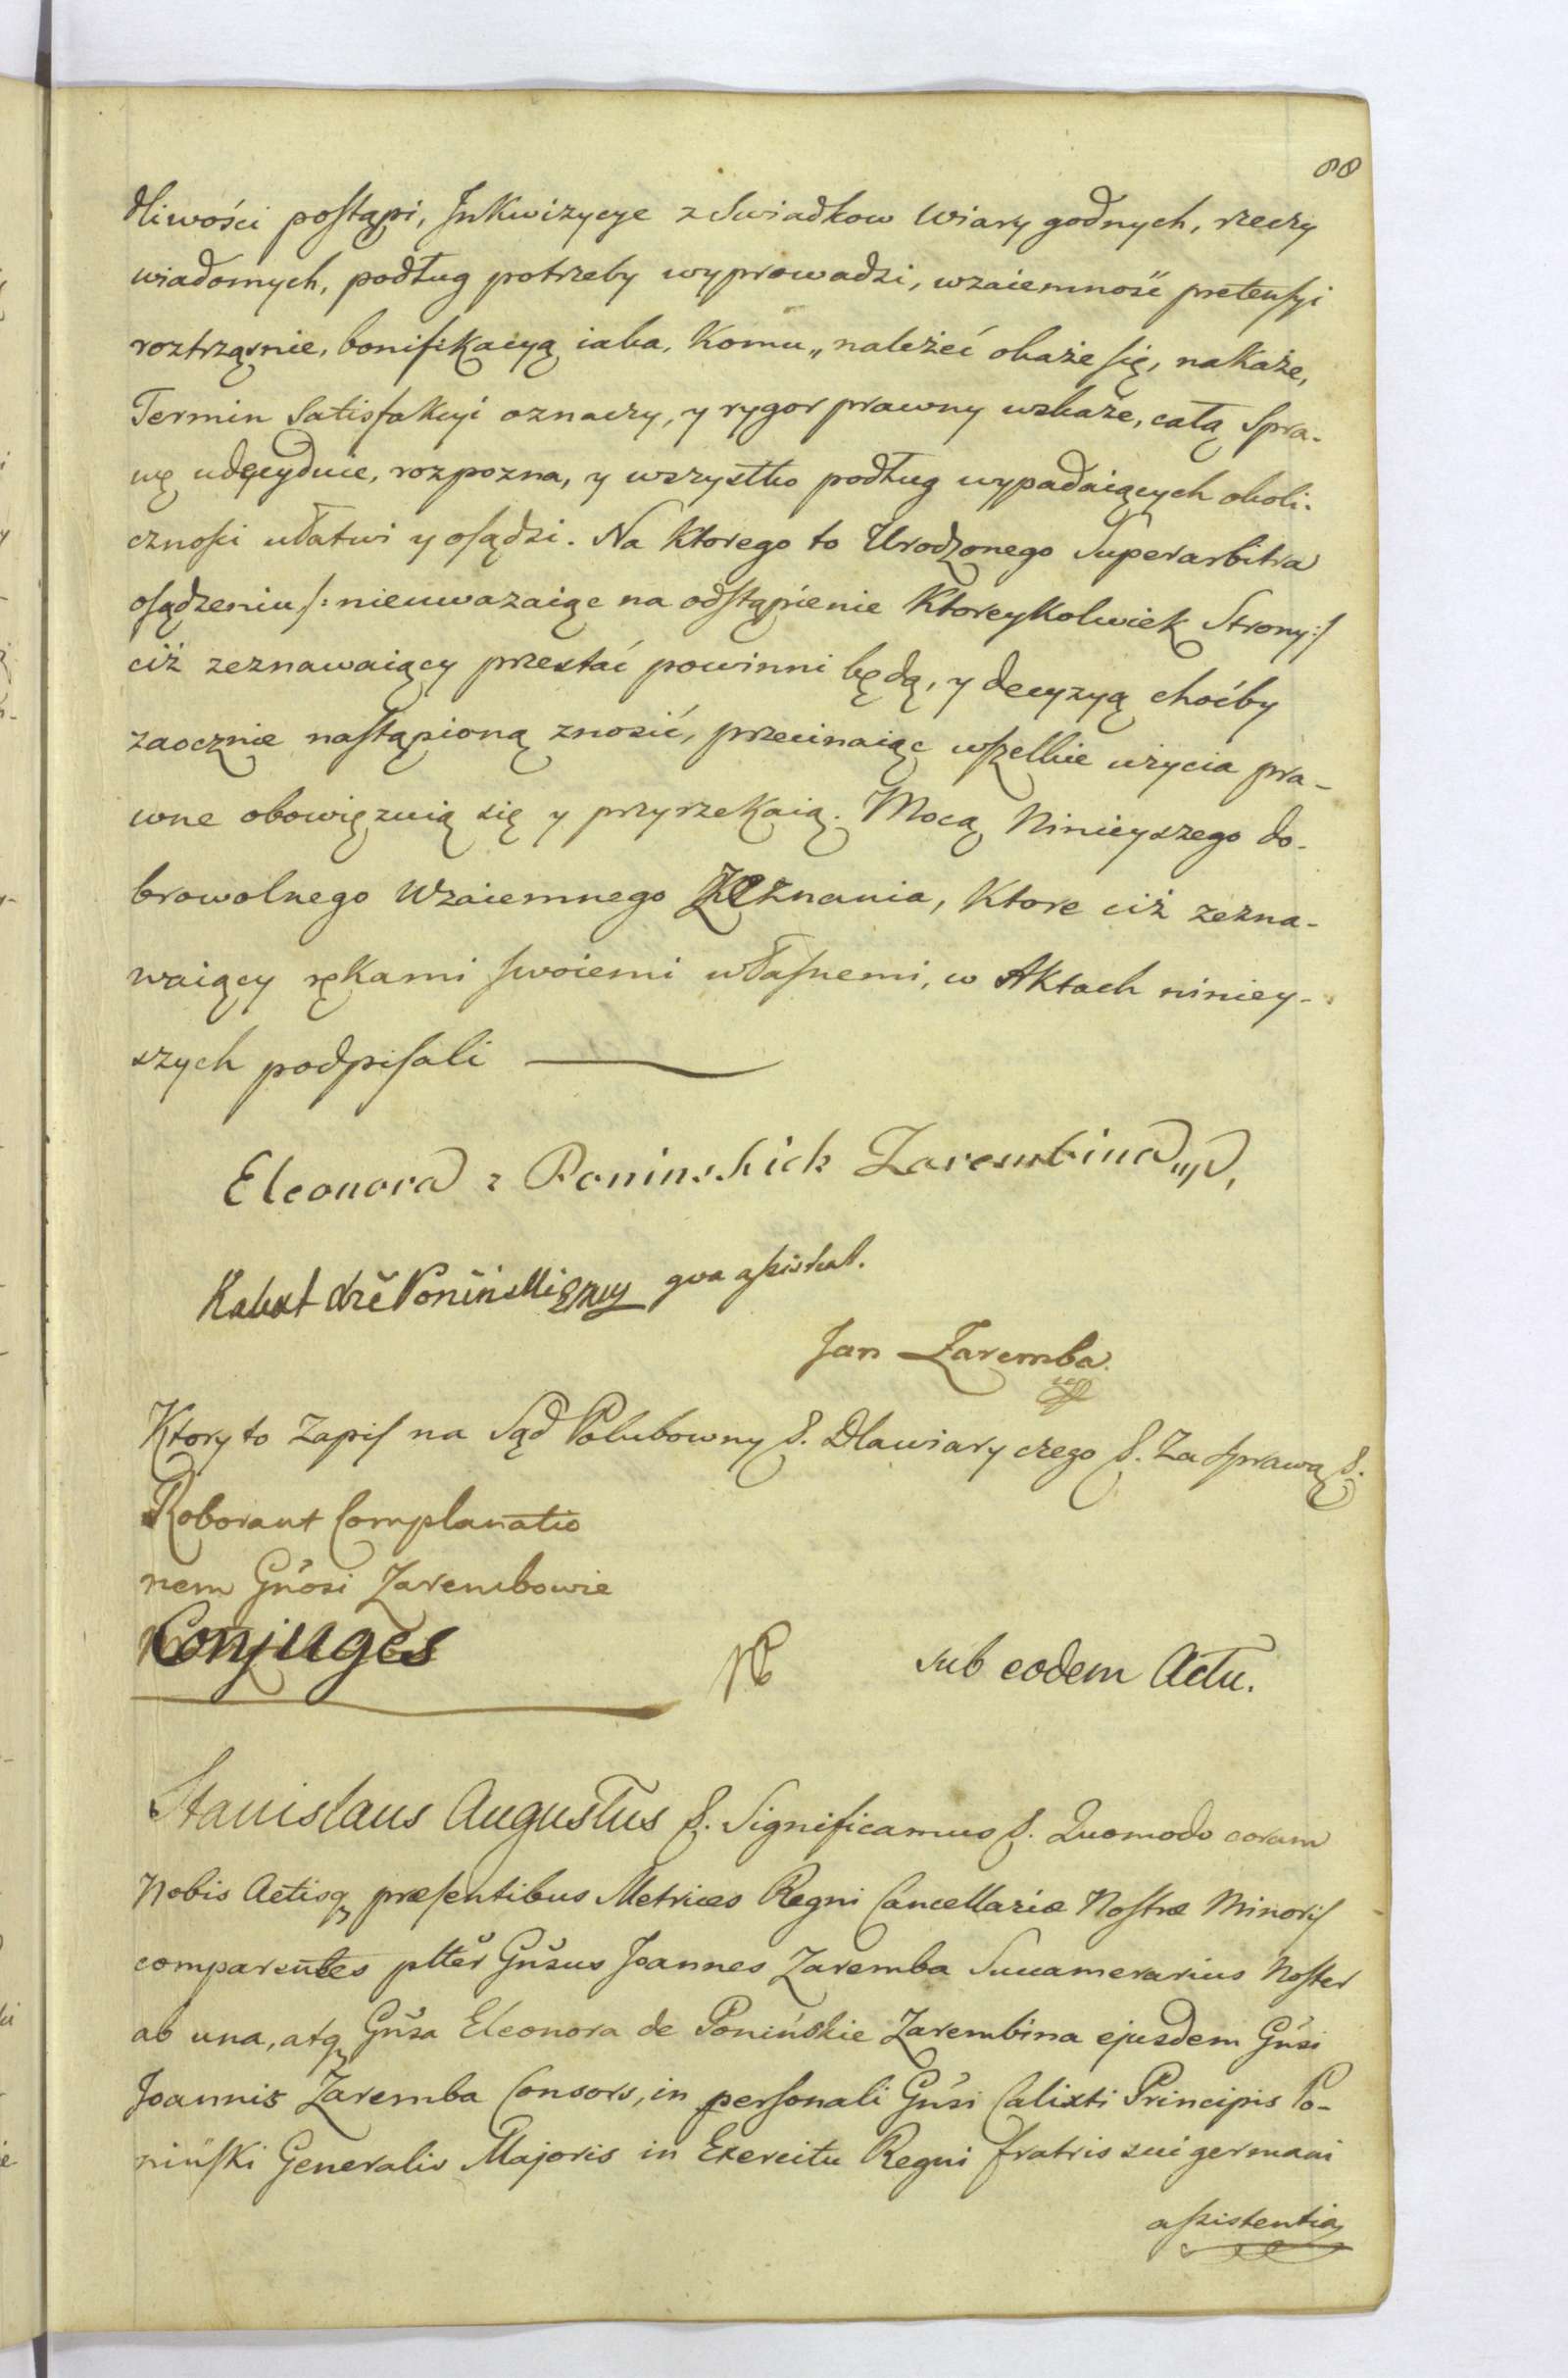 88
dliwości postąpi, Inkwizycye z Swiadkow Wiary godnych, rzeczy
wiadomych, podług potrzeby wyprowadzi, wzaiemność pretensyi
roztrząsnie, bonifikacyą iaka, komu„ należeć okaże się, nakaże,
Termin Satisfakcyi oznaczy, y rygor prawny wskaże, całą Spra-
wę udecyduie, rozpozna, y wszystko podług wypadaiących okoli-
cznosci ułatwi y osądzi. Na ktorego to Urodzonego Superarbitra
osądzeniu /: nieuwazaiąc na odstąpienie Ktoreykolwiek Strony :/
ciż zeznawaiący przestać powinni będą, y decyzyą choćby
zaocznie nastąpioną znosić, przecinaiąc wszelkie użycia pra-
wne obowięzuią się y przyrzekaią. Mocą Ninieyszego do-
browolnego Wzaiemnego Zeznania, ktore ciż zezna-
waiący rękami swoiemi własnemi, w Aktach niniey-
szych podpisali
Eleonora z Poninskich Zarembina
Kalixt Xże Poninski qua assistens.
Jan Zaremba
Ktory to Zapis na Sąd Polubowny &. Dla wiary czego &. Za sprawą &.
Roborant Complanatio
nem Gnosi Zarembowie
Conjuges
sub eodem Actu.
Stanislaus Augustus &. Significamus &. Quomodo coram
Nobis Actisq præsentibus Metrices Regni Cancellariæ Nostræ Minoris
comparentes plter Gnsus Joannes Zaremba Succamerarius Noster
ab una, atq Gnsa Eleonora de Ponińskie Zarembina ejusdem Gnsi
Joannis Zaremba Consors, in personali Gnsi Calixti Principis Po-
niński Generalis Majoris in Exercitu Regni fratris sui germani
assistentia